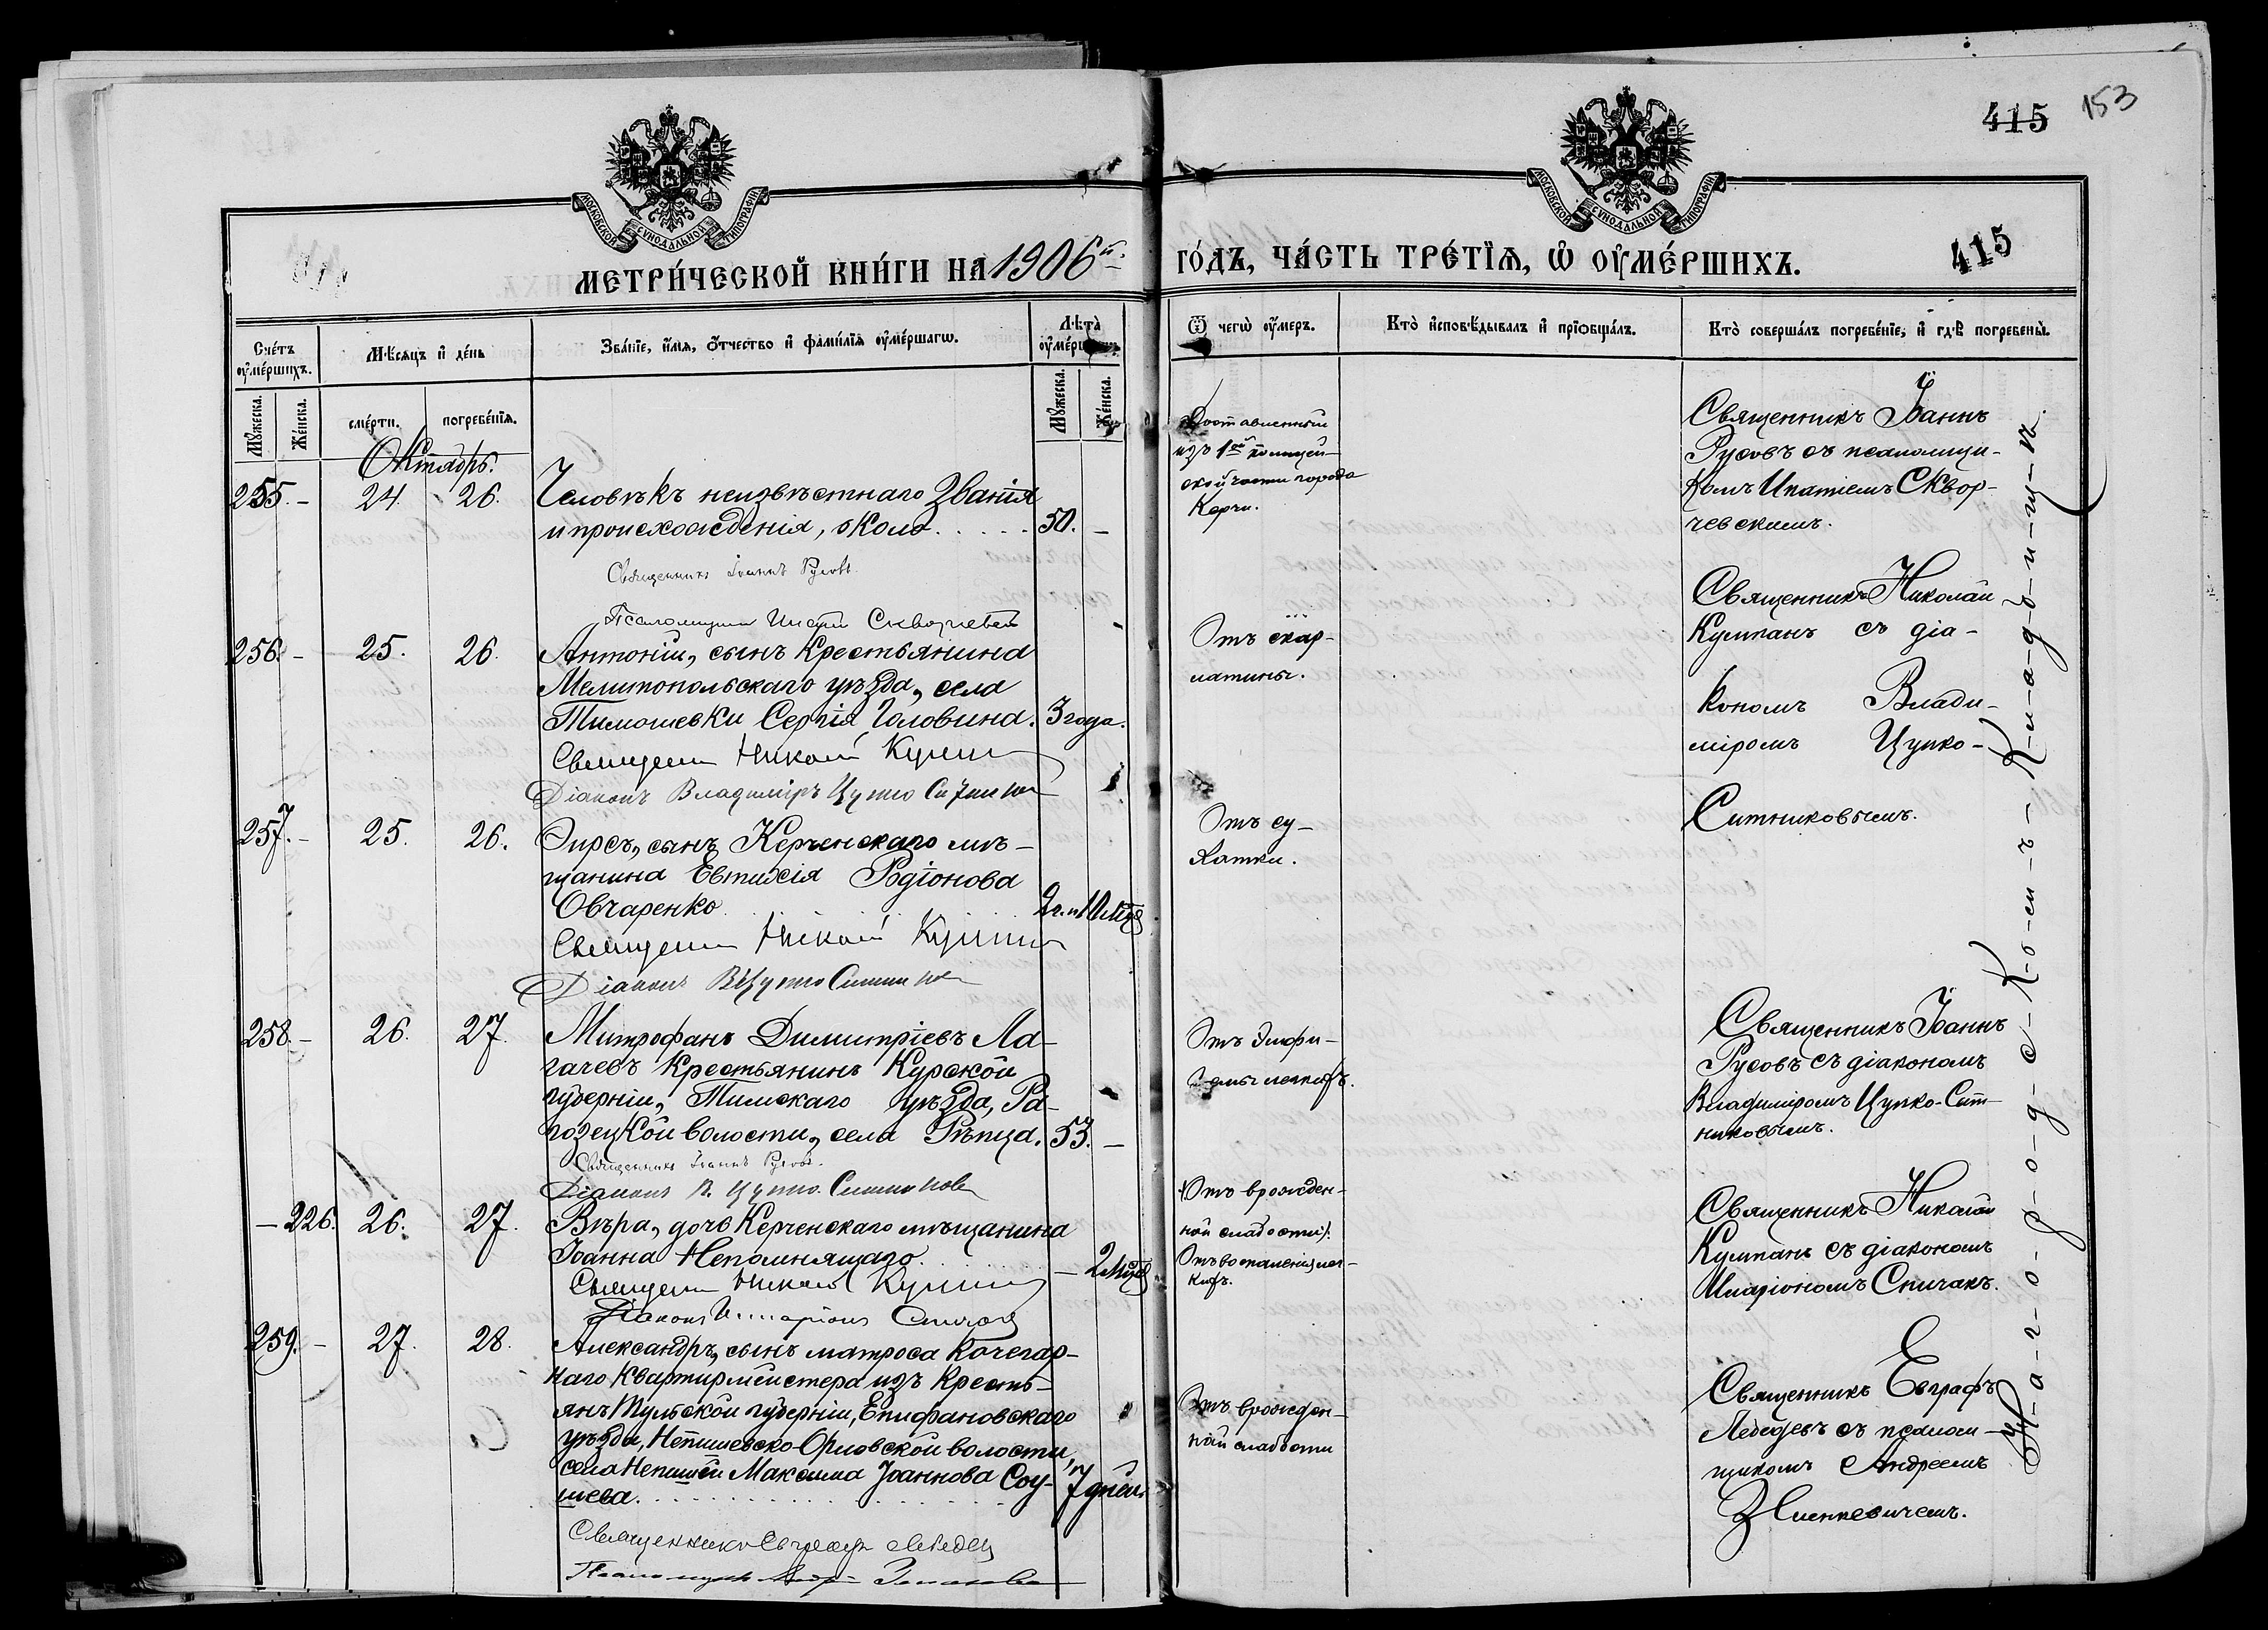 415 153
МОСКОВСКОЙ СУНОДАЛЬНОЙ ТИПОГРАФІИ
МОСКОВСКОЙ СУНОДАЛЬНОЙ ТИПОГРАФІИ
МЕТРИ́ЧЕСКОЙ КНИ́ГИ НА 1906й
ГО́ДЪ, ЧА́СТЬ ТРЕ́ТІѦ, Ѡ ОУ҆МЕ́РШИХЪ.
415
Сче́тъ оу҆ме́ршихъ.
Мѣ́сяцъ и҆ де́нь
Зва́нїе, и҆́мя, ѻ҆́тчество и҆ фами́лїя оу҆ме́ршагѡ.
Лѣта̀ оу҆ме́ршагѡ
Мꙋ́жеска.
Же́нска.
сме́рти.
погребе́нїя.
Мꙋ́жеска.
Же́нска.
Ѿ чегѡ̀ оу҆́меръ.
Кто̀ и҆сповѣ́дывалъ и҆ прїѡбща́лъ.
Кто̀ соверша́лъ погребе́нїе, и҆ гдѣ̀ погребены̀.
Октябрь.
255. - 24. 26. Человѣкъ неизвѣстнаго званія
и происхожденія, около . . . . . 50. -
Священникъ Іоаннъ Русовъ.
Доставленный
изъ 1ой полицей-
ской части города
Керчи.
Священникъ Іоаннъ
Русовъ съ псаломщи-
комъ Ипатіемъ Сквор-
чевскимъ.
256. - 25. 26. Антоній, сынъ крестьянина
Мелитопольскаго уѣзда, села
Тимошевки Сергія Головина. 3 года.
Священникъ Николай Кумпанъ
Діаконъ Владиміръ Цупко Ситниковъ
Отъ скар-
латины.
Священникъ Николай
Кумпанъ съ діа-
кономъ Влади-
міромъ Цупко-
Ситниковымъ.
257. - 25. 26. Ѳирсъ, сынъ Керченскаго мѣ-
щанина Евтихія Родіонова
Овчаренко . . . 2 г. и 10 мѣс.
Священникъ Николай Кумпанъ
Діаконъ В Цупко Ситниковъ
Отъ су-
хотки.
258. - 26. 27. Митрофанъ Димитріевъ Ла-
гачевъ крестьянинъ Курской
губерніи, Тимскаго уѣзда, Ра-
гозецкой волости, села Рѣпца. 53. -
Священникъ Іоаннъ Русовъ.
Діаконъ В. Цупко Ситниковъ
Отъ эмфи-
земы легкихъ.
Священникъ Іоаннъ
Русовъ съ діакономъ
Владиміромъ Цупко-Сит-
никовымъ.
- 226. 26. 27. Вѣра, дочь Керченскаго мѣщанина
Іоанна Непомнящаго . . . - 2 мѣс.
Священникъ Николай Кумпанъ
Діаконъ Иларіонъ Спичакъ
Отъ врожден-
ной слабости).
Отъ воспаленія лег-
кихъ.
Священникъ Николай
Кумпанъ съ діакономъ
Иларіономъ Спичакъ.
259. - 27. 28. Александръ, сынъ матроса кочегар-
наго квартирмейстера изъ кресть-
янъ Тульской губерніи, Епифановскаго
уѣзда, Непишевско-Орловской волости,
села Непишей Максима Іоаннова Соу-
шева. . . . . . 7 дней.
Священникъ Евграфъ Лебедевъ
Отъ врожден-
ной слабости
Священникъ Евграфъ
Лебедевъ съ псалом-
щикомъ Андреемъ
Н-а-г-о-р-о-д-с-к-о-м-ъ-К-л-а-д-б-и-щ-ѣ.